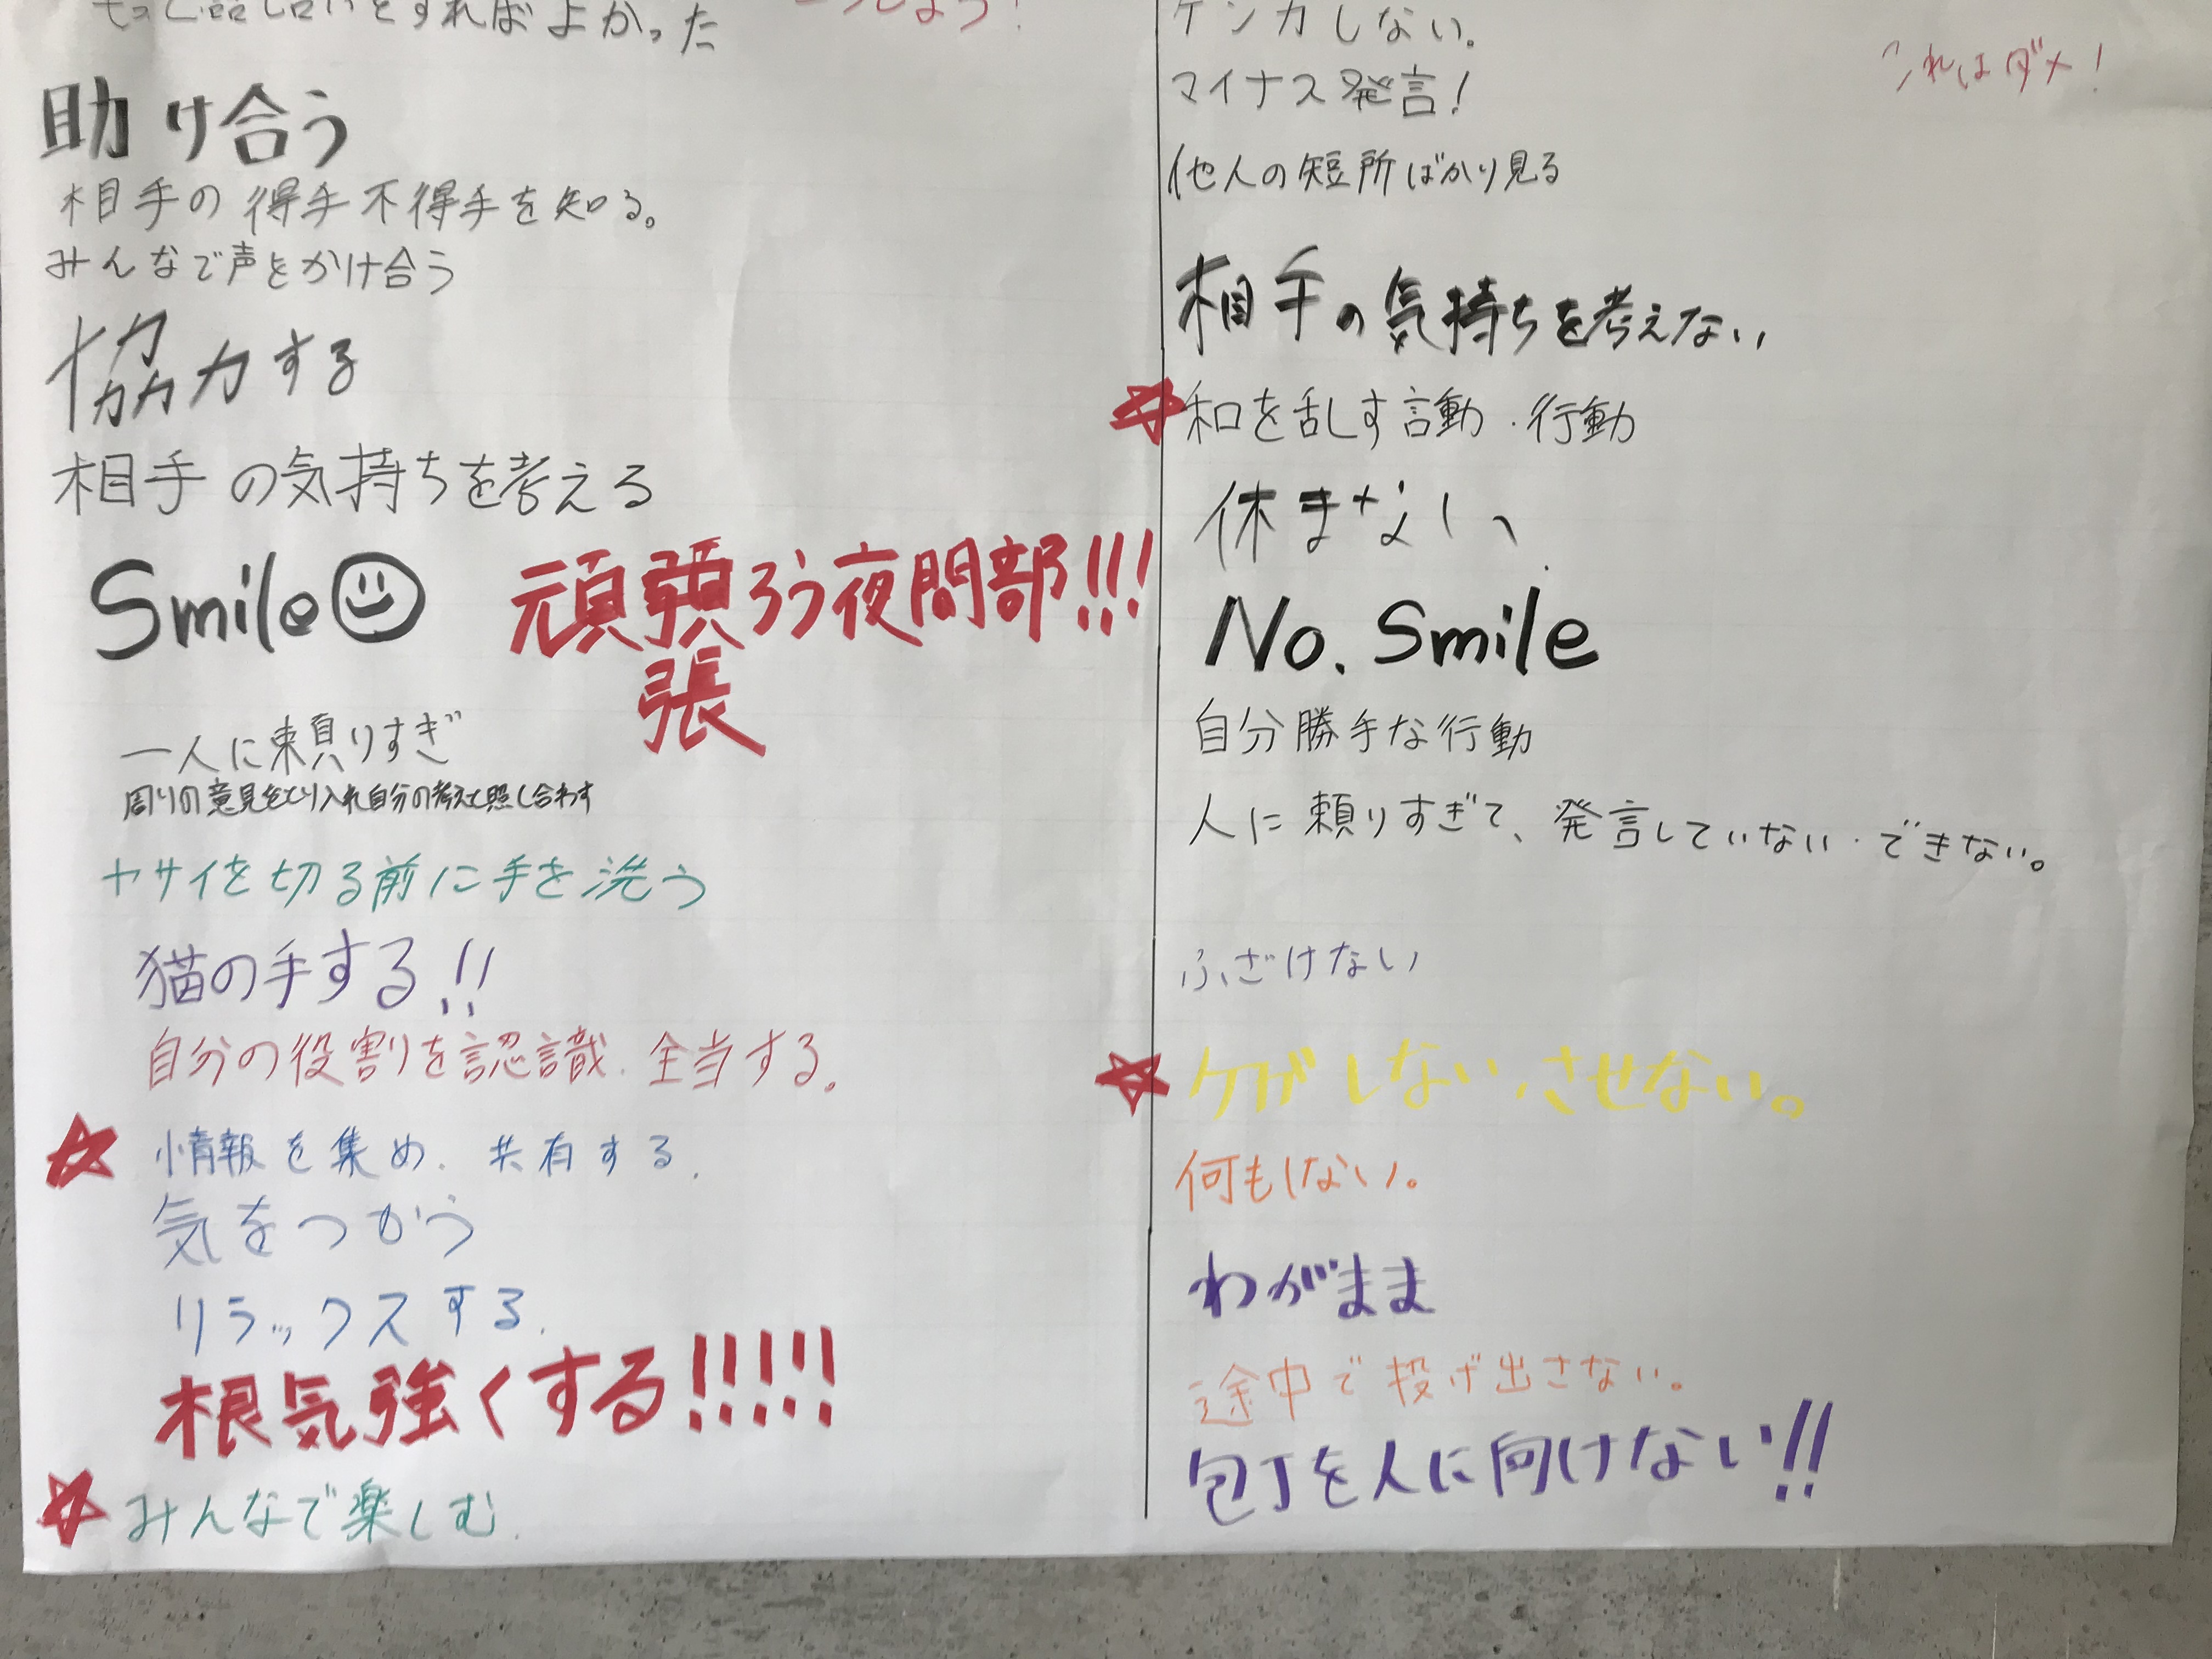 もっと話し合いをすればよかった
こうしよう!
助け合う
相手の得手不得手を知る。
みんなで声をかけ合う
協力する
相手の気持ちを考える
Smile
頑張ろう夜間部!!!
張
一人に頼りすぎ
周りの意見をとり入れ自分の考えと照し合わす
ヤサイを切る前に手を洗う
猫の手する!!
自分の役割りを認識.全当する。
情報を集め、共有する.
気をつかう
リラックスする.
根気強くする!!!!!
みんなで楽しむ.
ケンカしない。
これはダメ!
マイナス発言!
他人の短所ばかり見る
相手の気持ちを考えない
和を乱す言動・行動
休まない、
No. Smile
自分勝手な行動
人に頼りすぎて、発言していない・できない。
ふざけない
ケガしない、させない。
何もしない。
わがまま
途中で投げ出さない。
包丁を人に向けない!!